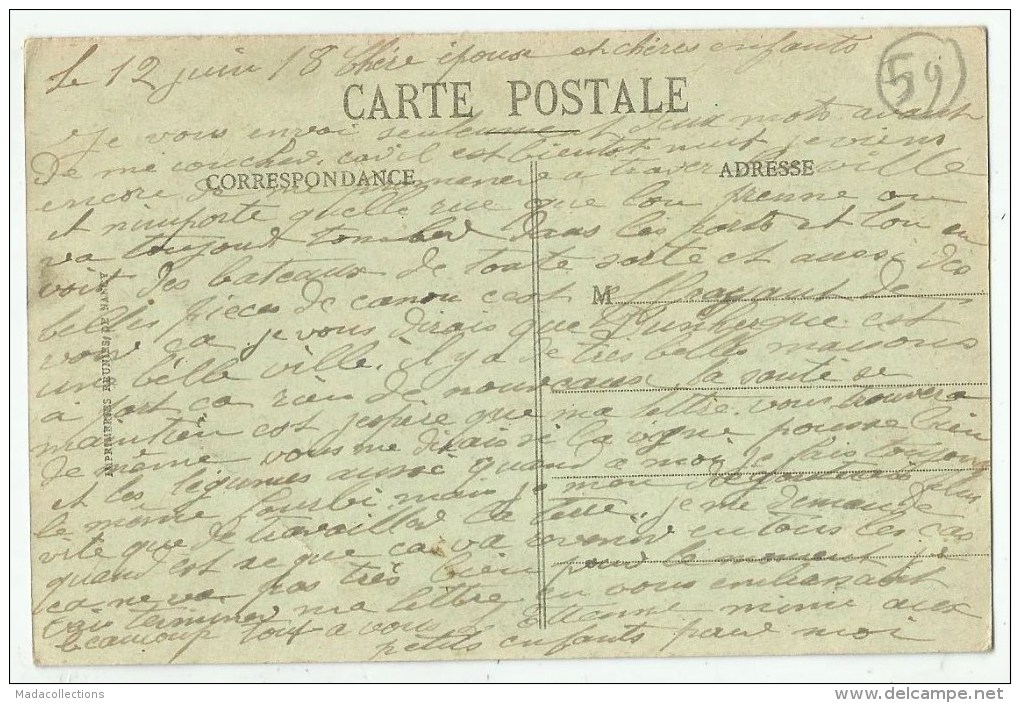 le 12 juin 18 Chère épouse et chères enfants
59
CARTE POSTALE
Je vous envoi seulement deux mots avant
de me coucher car il est bientot nuit je viens
CORRESPONDANCE
ADRESSE
encore de me promener a travers la ville
et n'importe quelle rue que lon prenne on
va toujours tomber dans les ports et lon en
voit des bateaux de toute sorte et aussi des
M
belles pièces de canon c'est de
voir ca je vous dirais que Dunkerque est
une bélle ville, il y a de très belles maisons
à part ca rien de nouveaux la santé se
maintien est j'espère que ma lettre vous trouvera
de même vous me dirais si la vigne pousse bien
et les légumes aussi quand a moi je fais toujours
le même fourbi mais je plus
vite que de travailler la terre, je me demande
quand est se que ca va revenir en tous les cas
ca ne va pas très bien pour le moment je
vais terminer ma lettre en vous embrassant
beaucoup tout a vous Etienne mimi aux
petits enfants pour moi
IMPRIMERIES REUNIES DE NANCY
Madacollections
delcampe.net